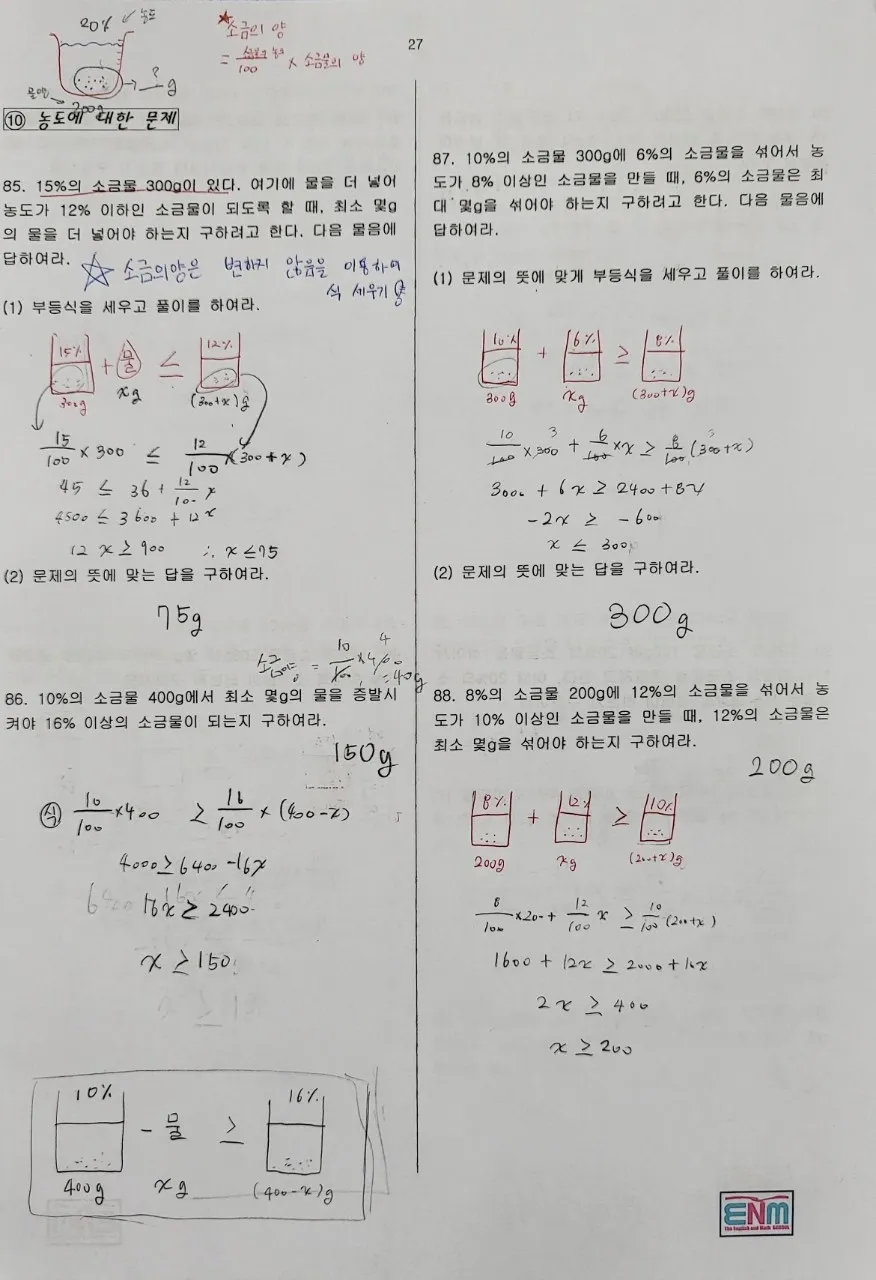 20% 농도
물양
200g
? g
★ 소금의 양
= 소금물의 농도/100 × 소금물의 양
27
⑩ 농도에 대한 문제
85. 15%의 소금물 300g이 있다. 여기에 물을 더 넣어
농도가 12% 이하인 소금물이 되도록 할 때, 최소 몇g
의 물을 더 넣어야 하는지 구하려고 한다. 다음 물음에
답하여라.
☆ 소금의양은 변하지 않음을 이용하여
식 세우기
(1) 부등식을 세우고 풀이를 하여라.
15% + 물 ≤ 12%
300g xg (300+x)g
15/100 × 300 ≤ 12/100 × (300+x)
45 ≤ 36 + 12/100 x
4500 ≤ 3600 + 12x
12x ≥ 900 ∴ x ≤ 75
(2) 문제의 뜻에 맞는 답을 구하여라.
75g
소금양 = 10/100 × 400 4
= 40g
86. 10%의 소금물 400g에서 최소 몇g의 물을 증발시
켜야 16% 이상의 소금물이 되는지 구하여라.
150g
식 10/100 × 400 ≥ 16/100 × (400-x)
4000 ≥ 6400 - 16x
16x ≥ 2400
x ≥ 150
10% - 물 ≥ 16%
400g xg (400-x)g
87. 10%의 소금물 300g에 6%의 소금물을 섞어서 농
도가 8% 이상인 소금물을 만들 때, 6%의 소금물은 최
대 몇g을 섞어야 하는지 구하려고 한다. 다음 물음에
답하여라.
(1) 문제의 뜻에 맞게 부등식을 세우고 풀이를 하여라.
10% + 6% ≥ 8%
300g xg (300+x)g
10/100 × 300 3 + 6/100 × x ≥ 8/100 (300+x) 3
3000 + 6x ≥ 2400 + 8x
-2x ≥ -600
x ≤ 300
(2) 문제의 뜻에 맞는 답을 구하여라.
300g
88. 8%의 소금물 200g에 12%의 소금물을 섞어서 농
도가 10% 이상인 소금물을 만들 때, 12%의 소금물은
최소 몇g을 섞어야 하는지 구하여라.
200g
8% + 12% ≥ 10%
200g xg (200+x)g
8/100 × 200 + 12/100 x ≥ 10/100 (200+x)
1600 + 12x ≥ 2000 + 10x
2x ≥ 400
x ≥ 200
ENM
The English and Math SCHOOL